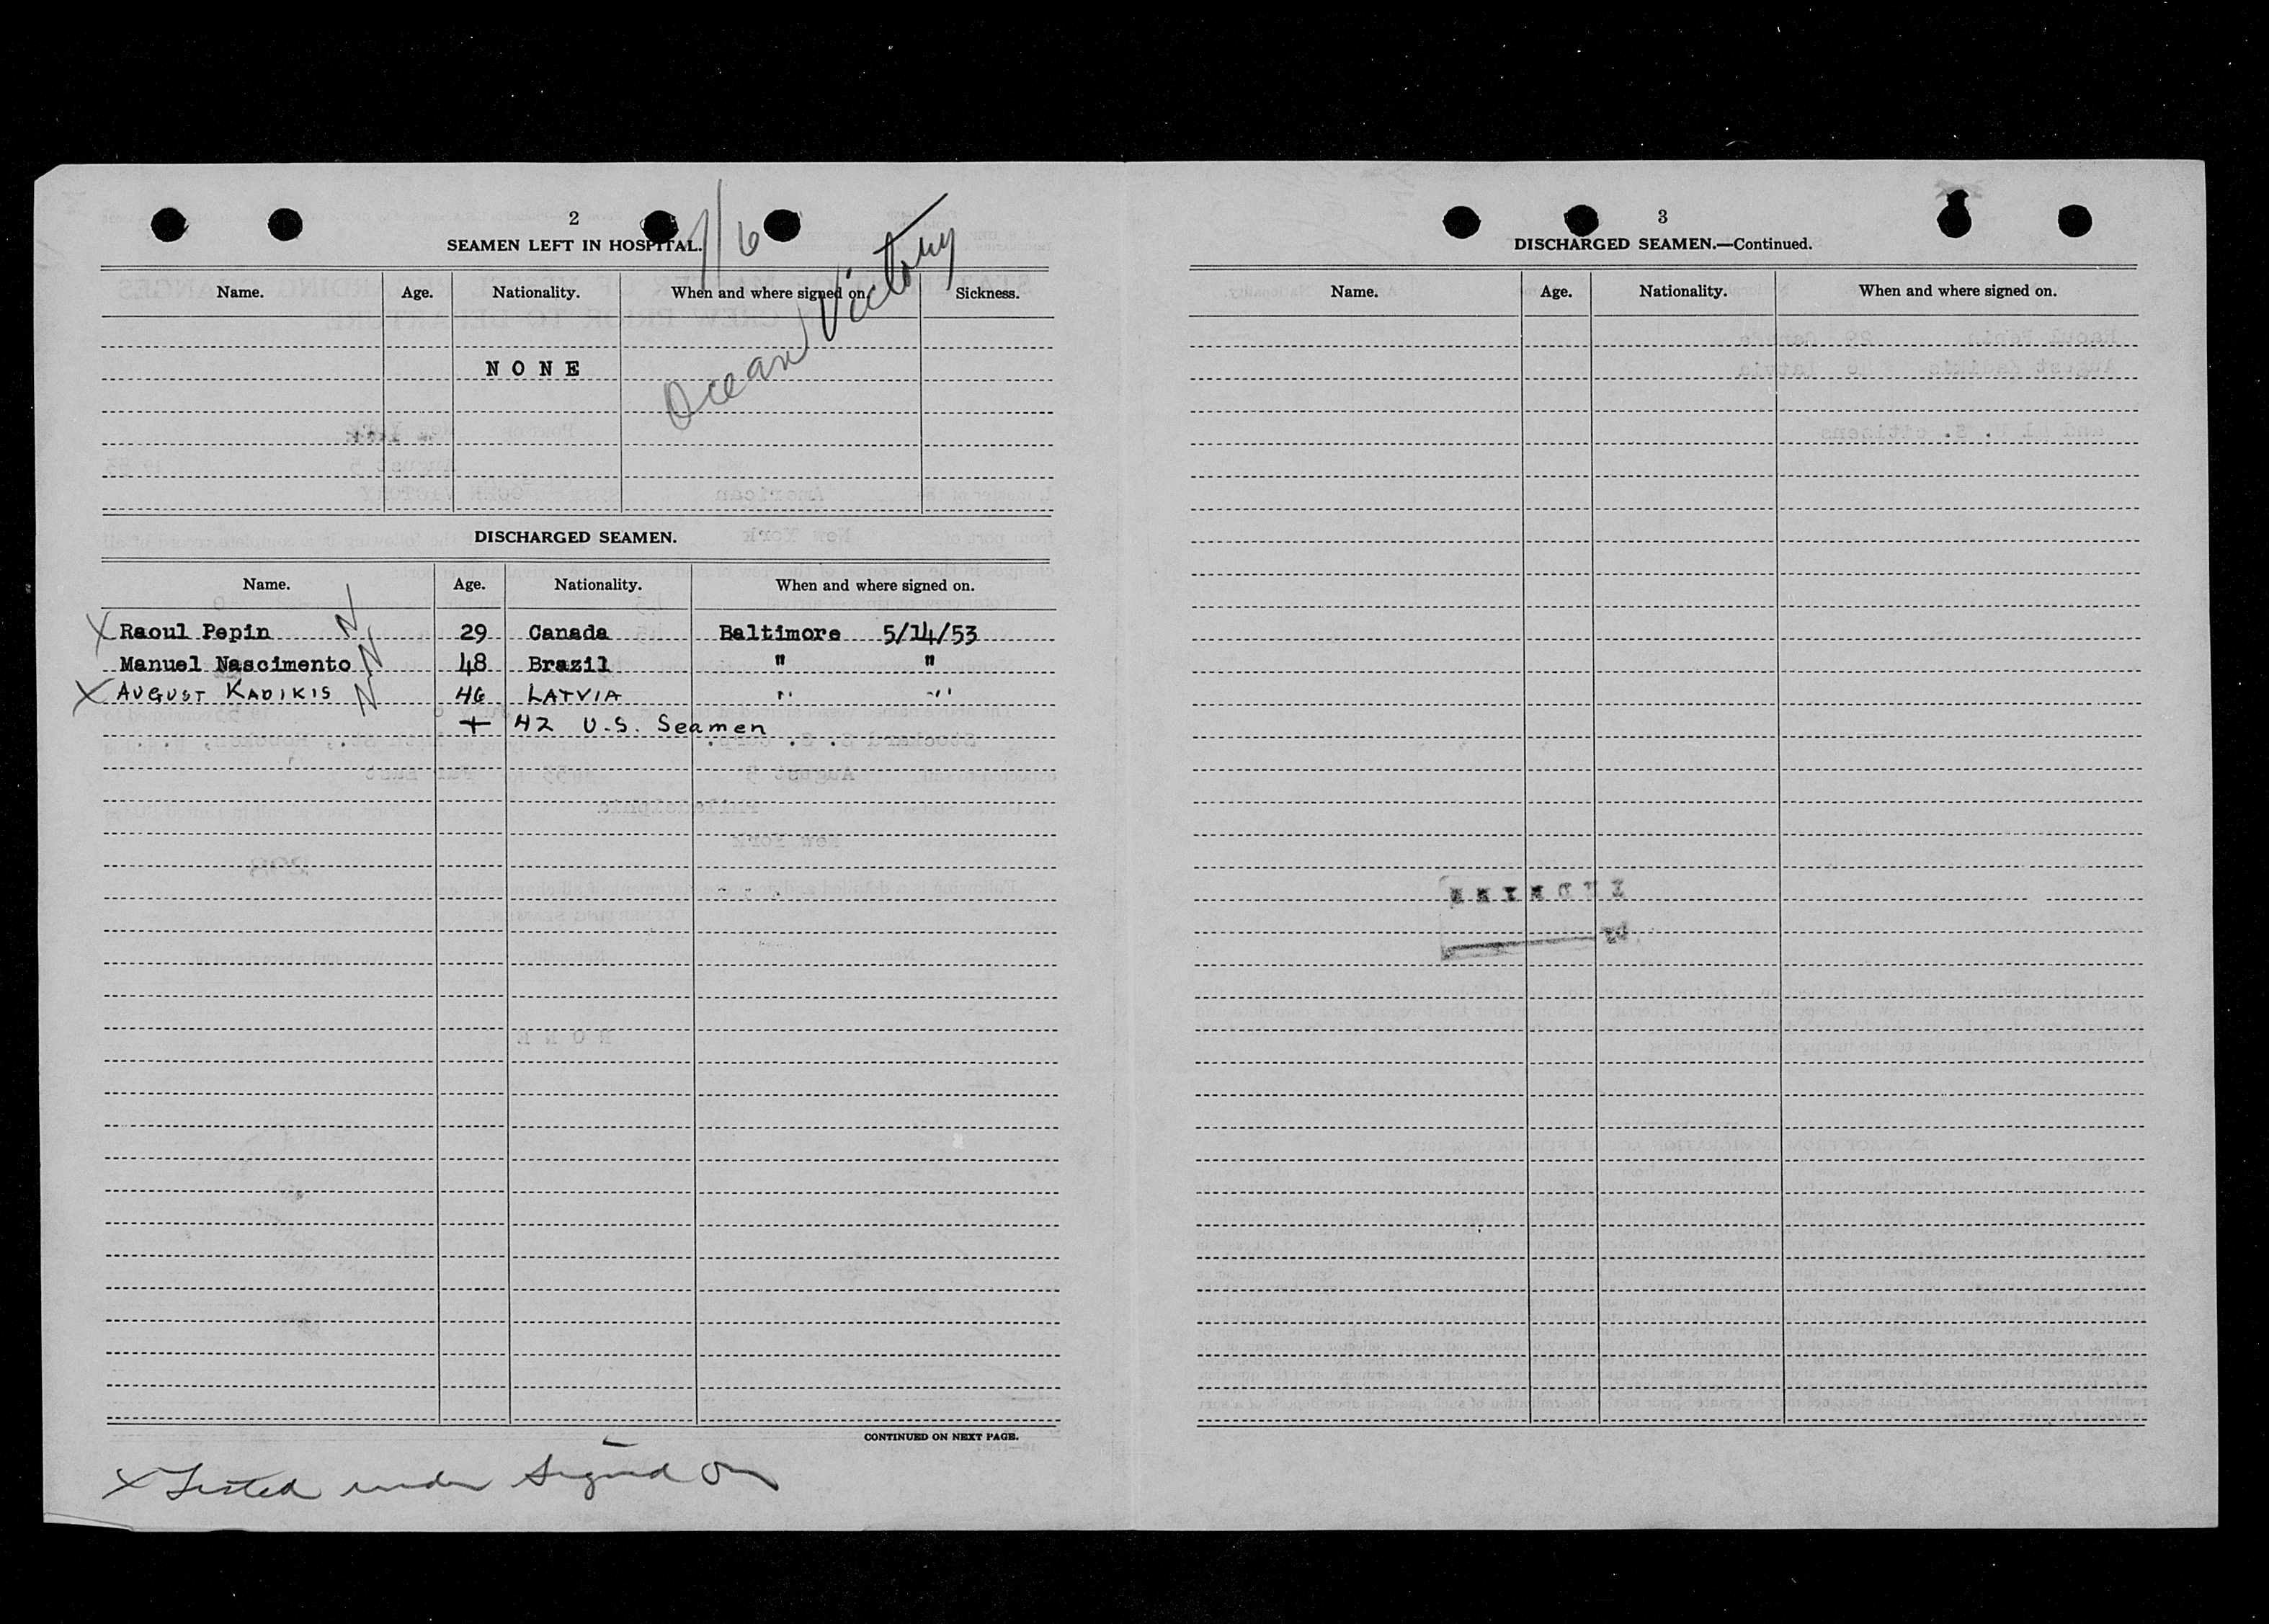 2
SEAMEN LEFT IN HOSPITAL.
7/6
Ocean Victory
Name. Age. Nationality. When and where signed on. Sickness.
NONE
DISCHARGED SEAMEN.
Name. Age. Nationality. When and where signed on.
X Raoul Pepin N 29 Canada Baltimore 5/14/53
Manuel Nascimento N 48 Brazil " "
X AUGUST KADIKIS N 46 LATVIA " "
+ 42 U.S. Seamen
CONTINUED ON NEXT PAGE.
X Listed under Signed On
3
DISCHARGED SEAMEN.—Continued.
Name. Age. Nationality. When and where signed on.